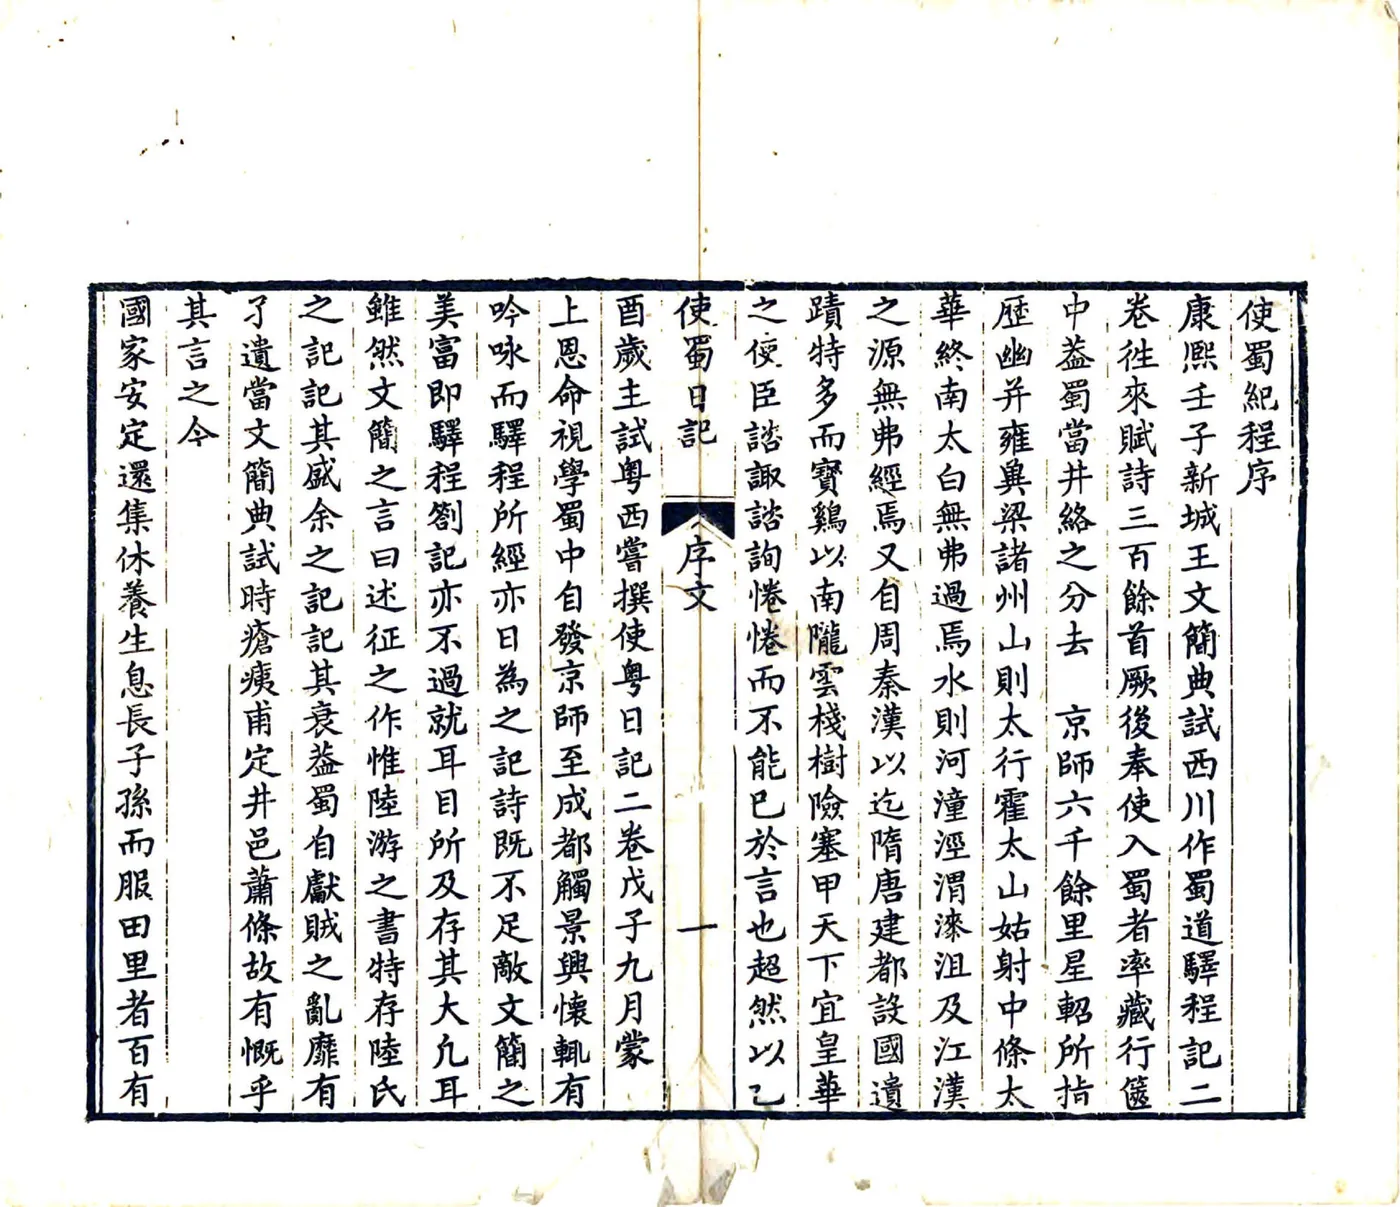 使蜀紀程序
康熙壬子新城王文簡典試西川作蜀道驛程記二
卷徃來賦詩三百餘首厥後奉使入蜀者率藏行篋
中葢蜀當井絡之分去　京師六千餘里星軺所指
歷幽并雍兾梁諸州山則太行霍太山姑射中條太
華終南太白無弗過焉水則河潼涇渭漆沮及江漢
之源無弗經焉又自周秦漢以迄隋唐建都設國遺
蹟特多而寶鷄以南隴雲棧樹險塞甲天下宜皇華
之使臣諮諏諮詢惓惓而不能已於言也超然以乙
使蜀日記
序文
一
酉歲主試粵西嘗撰使粵日記二卷戊子九月蒙
上恩命視學蜀中自發京師至成都觸景興懷輒有
吟咏而驛程所經亦日為之記詩既不足敵文簡之
美富即驛程劄記亦不過就耳目所及存其大凢耳
雖然文簡之言曰述征之作惟陸游之書特存陸氏
之記記其盛余之記記其衰葢蜀自獻賊之亂靡有
孑遺當文簡典試時瘡痍甫定井邑蕭條故有慨乎
其言之今
國家安定還集休養生息長子孫而服田里者百有